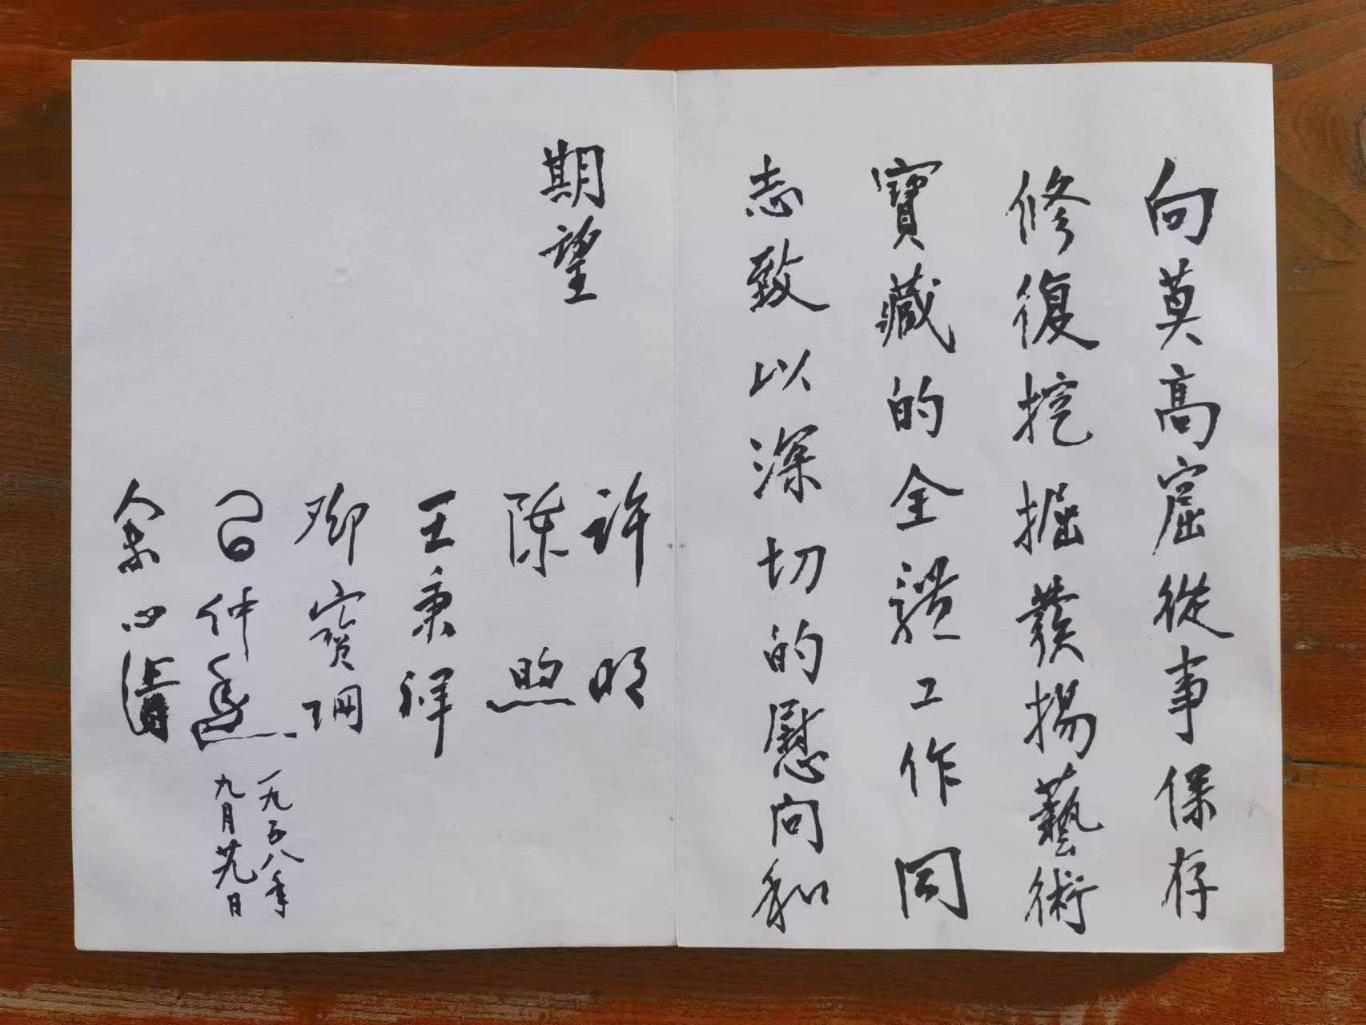 向莫高窟從事保存
修復挖掘發揚藝術
寶藏的全體工作同
志致以深切的慰问和
期望
许明
陈煦
王秉祥
邓宝珊
吕仲
余心清
一九五八年
九月廿九日